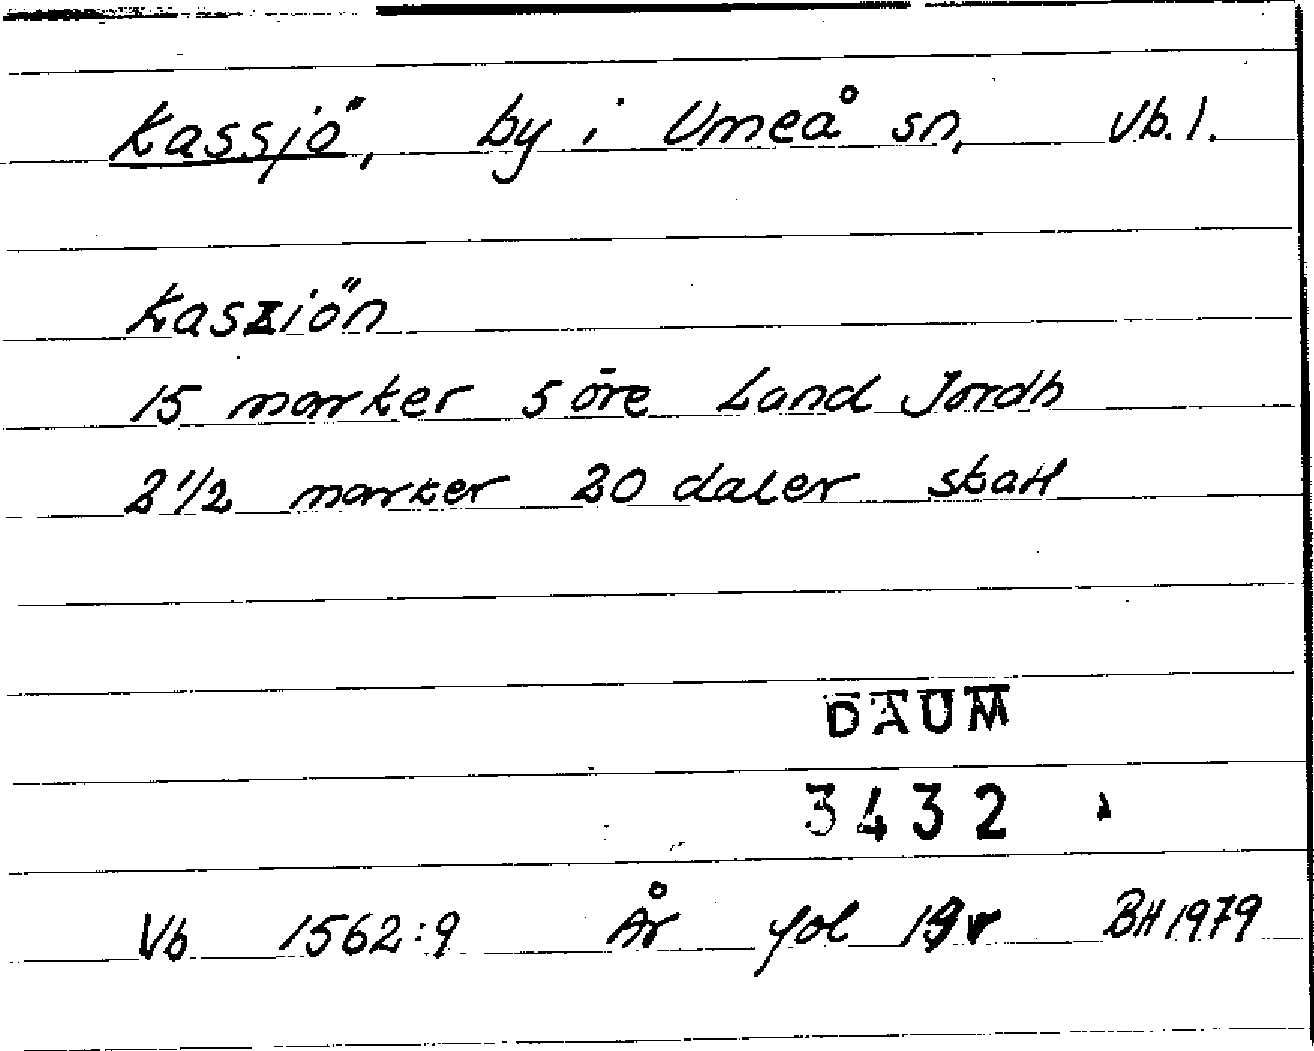 Kassjö, by i Umeå sn, Vb. l.
Kasziön
15 marker 5 öre Land Jordh
2 1/2 marker 20 daler skatt
DAUM
3432
Vb 1562:9 År fol 19v BH 1979